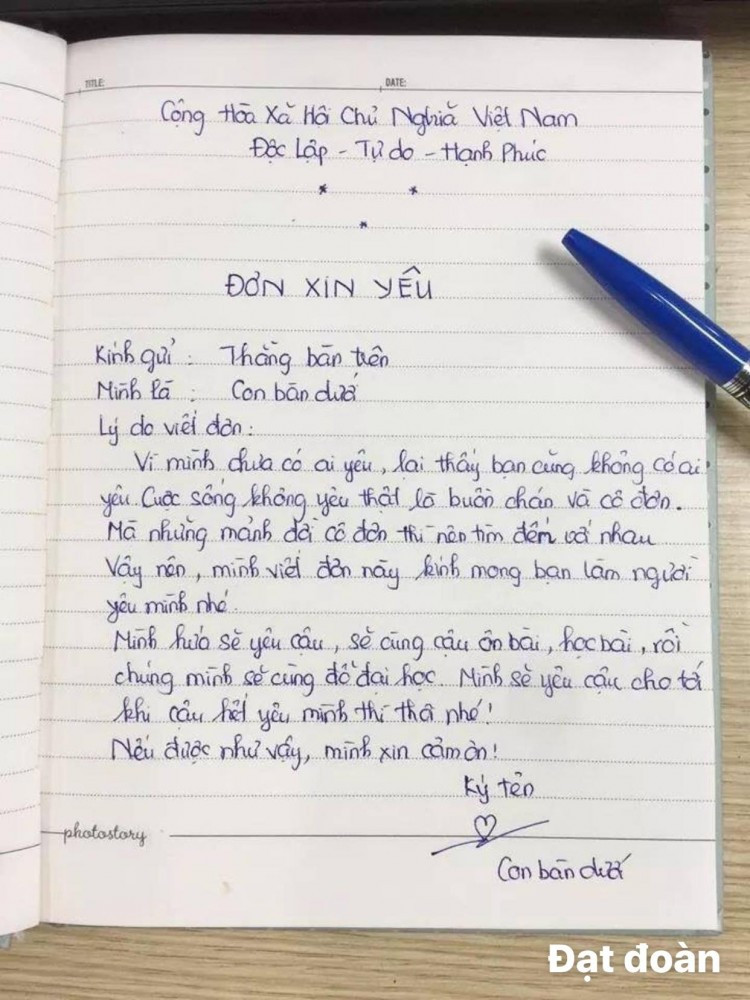 TITLE: DATE:
Cộng Hòa Xã Hội Chủ Nghĩa Việt Nam
Độc Lập - Tự do - Hạnh Phúc
* *
*
ĐƠN XIN YÊU
Kính gửi : Thằng bàn trên
Mình là : Con bàn dưới
Lý do viết đơn :
Vì mình chưa có ai yêu, lại thấy bạn cũng không có ai
yêu. Cuộc sống không yêu thật là buồn chán và cô đơn.
Mà những mảnh đời cô đơn thì nên tìm đến với nhau
Vậy nên, mình viết đơn này kính mong bạn làm người
yêu mình nhé.
Mình hứa sẽ yêu cậu, sẽ cùng cậu ôn bài, học bài, rồi
chúng mình sẽ cùng đỗ đại học. Mình sẽ yêu cậu cho tới
khi cậu hết yêu mình thì thôi nhé!
Nếu được như vậy, mình xin cảm ơn!
Ký tên
photostory
Con bàn dưới
Đạt đoàn